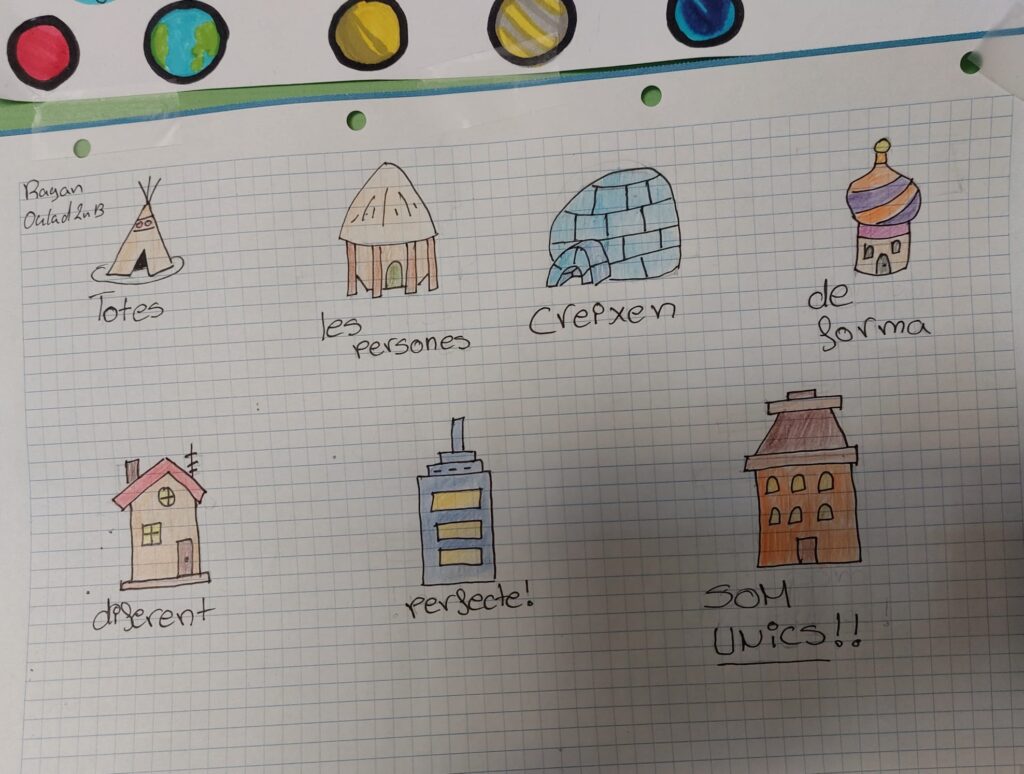 Rayan
Oulad 2n B
Totes
les
persones
crepxen
de
forma
diferent
perfecte!
SOM
UNiCS!!